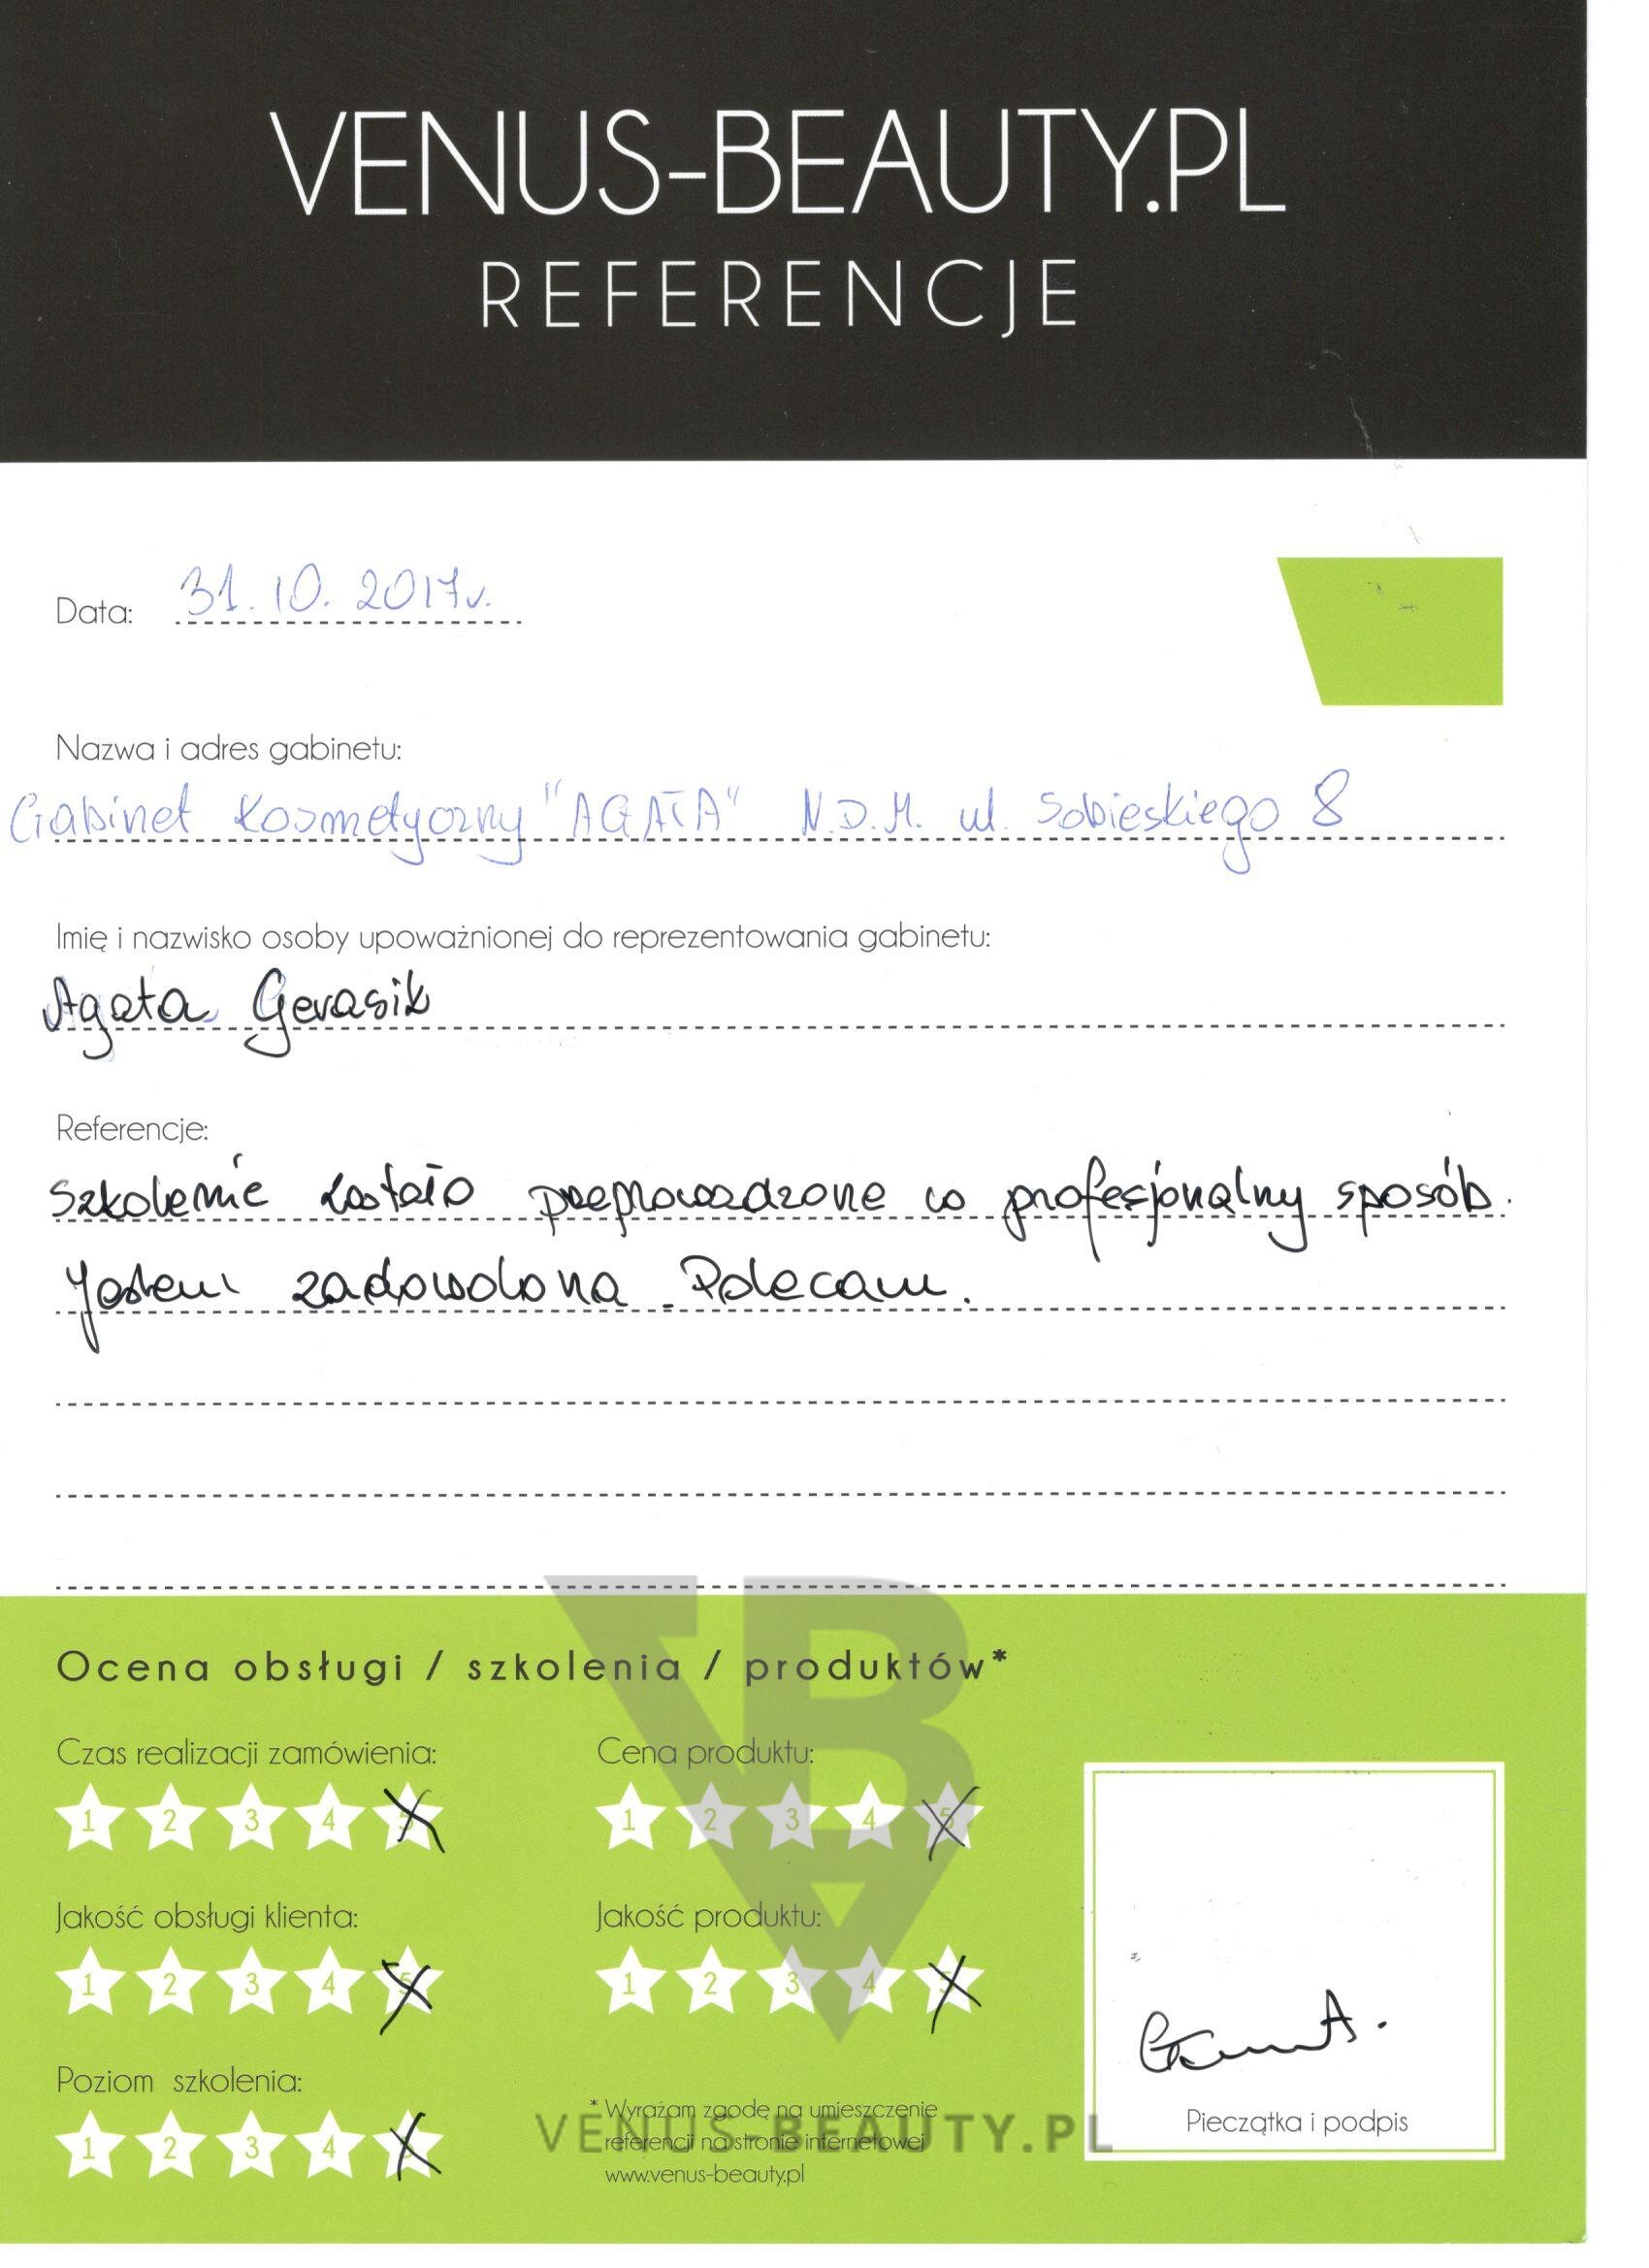 VENUS-BEAUTY.PL
REFERENCJE
Data: 31.10.2017r.
Nazwa i adres gabinetu:
Gabinet Kosmetyczny "AGATA" N.D.M. ul. Sobieskiego 8
Imię i nazwisko osoby upoważnionej do reprezentowania gabinetu:
Agata Gerasik
Referencje:
Szkolenie zostało przeprowadzone w profesjonalny sposób.
Jestem zadowolona. Polecam.
Ocena obsługi / szkolenia / produktów*
Czas realizacji zamówienia:
1 2 3 4 5
Cena produktu:
1 2 3 4 5
Jakość obsługi klienta:
1 2 3 4 5
Jakość produktu:
1 2 3 4 5
Poziom szkolenia:
1 2 3 4
* Wyrażam zgodę na umieszczenie
referencji na stronie internetowej
www.venus-beauty.pl
Pieczątka i podpis
VENUS-BEAUTY.PL